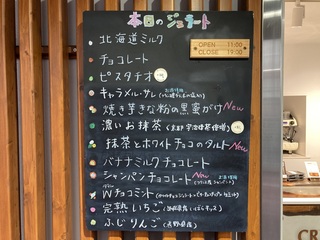 本日のジェラート
OPEN 11:00
CLOSE 19:00
北海道ミルク
チョコレート
ピスタチオ
キャラメル・サレ
焼き芋きな粉の黒蜜がけ New
濃いお抹茶
抹茶とホワイトチョコのタルト New
バナナミルクチョコレート
シャンパンチョコレート New
Wチョコミント
完熟いちご
ふじりんご (長野県産)
CR